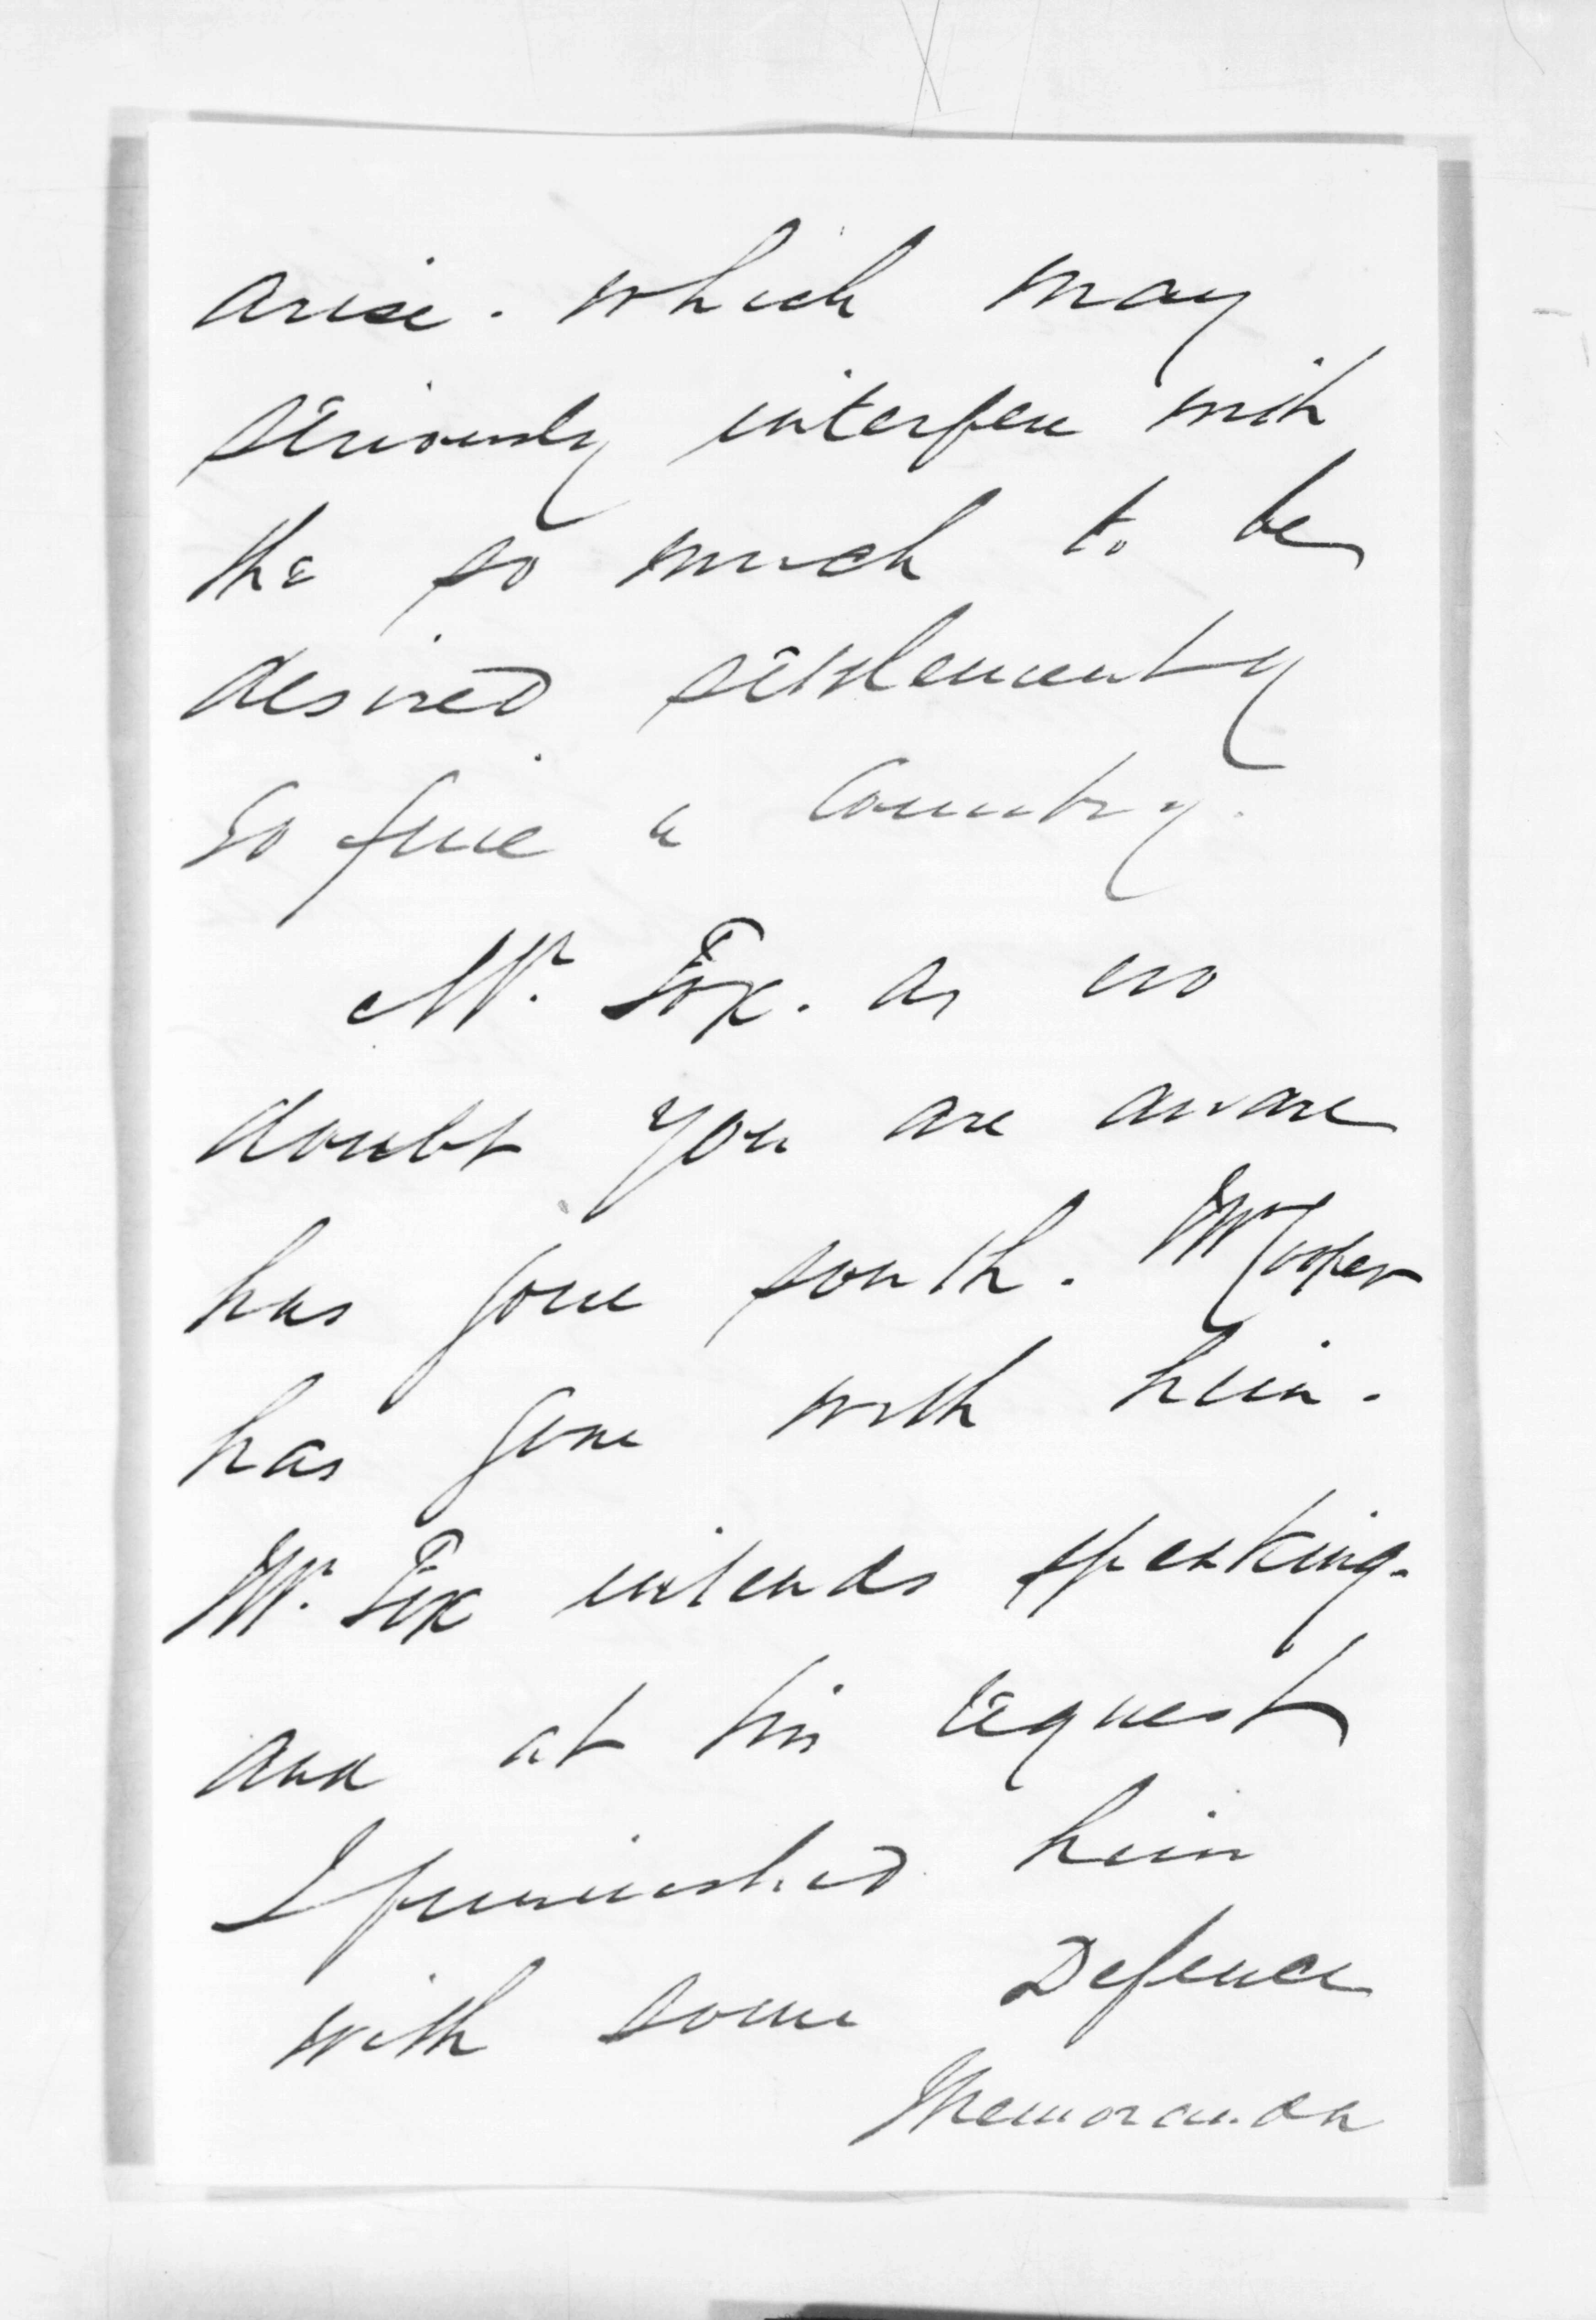 arise. which may
seriously interfere with
the so much to be
desired settlement of
so fine a Country.
Mr. Fox. as no
doubt you are aware
has gone south. Mr Cooper
has gone with him.
Mr. Fox intends speaking.
and at his request
I furnished him
with some Defence
Memoranda